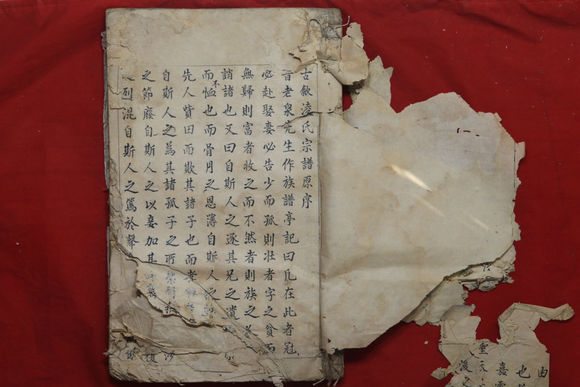 古歙淩氏宗譜原序
昔老泉先生作族譜亭記曰凡在此者冠
必赴娶妻必告少而孤則壯者字之貧而
無歸則富者收之而不然者則族之
誚諸也又曰自斯人之逐其兄之遺
而不恤也而骨肉之恩薄自斯人之
先人貲田而欺其諸孤子也而孝
自斯人之為其諸孤子之所
之節廢自斯人之以妾加其
烈混自斯人之篤於聲
由
也
嘉
氏
後之